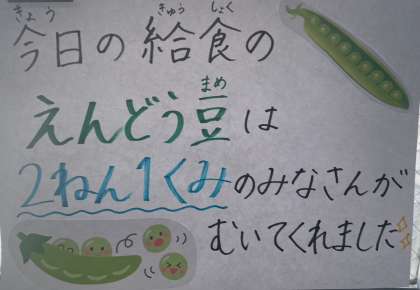 きょう きゅう しょく
今日の給食の
まめ
えんどう豆は
2ねん1くみのみなさんが
むいてくれました